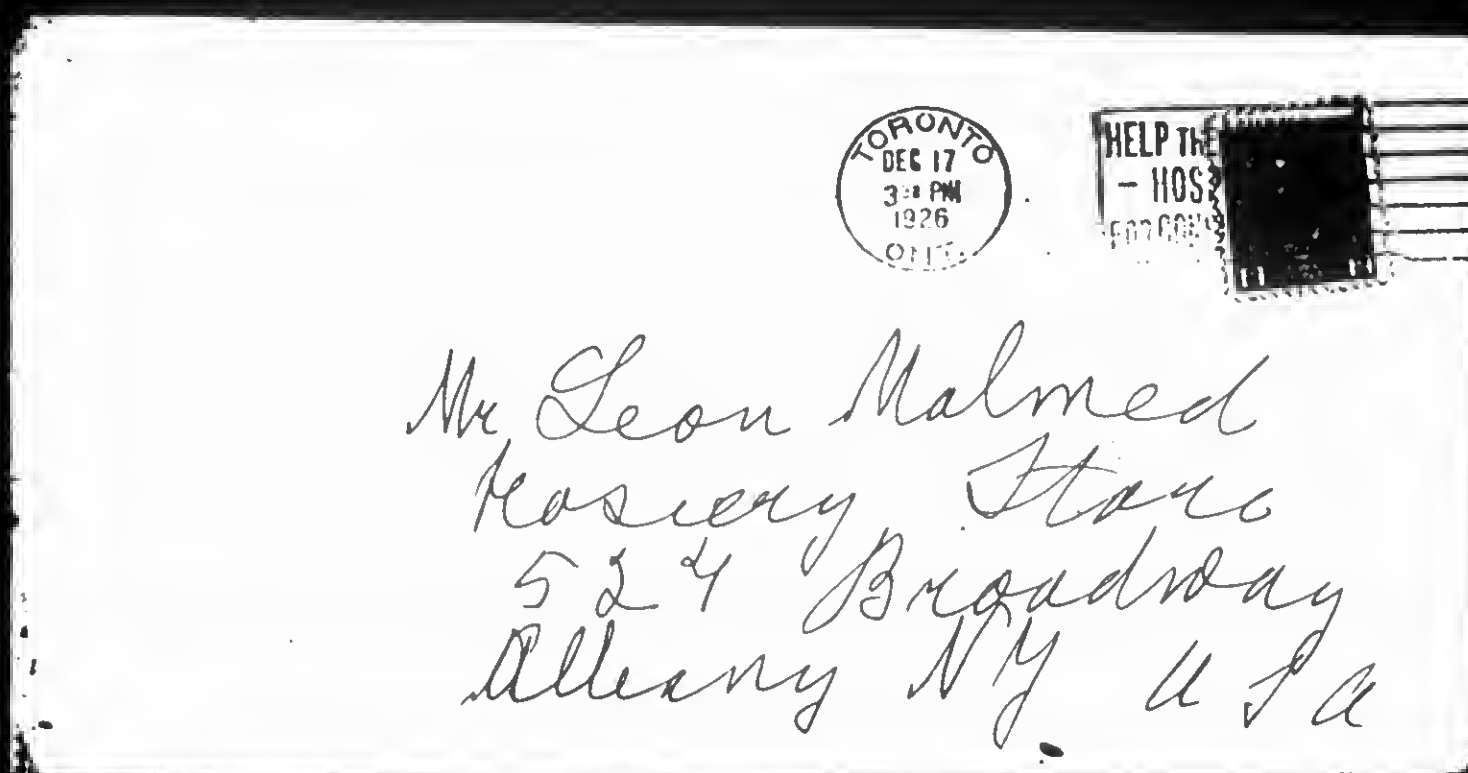 TORONTO
DEC 17
PM
1926
ONT.
HELP THE
- HOS
FOR CON
Mr Leon Malmed
Hosiery Store
524 Broadway
Albany NY U S A